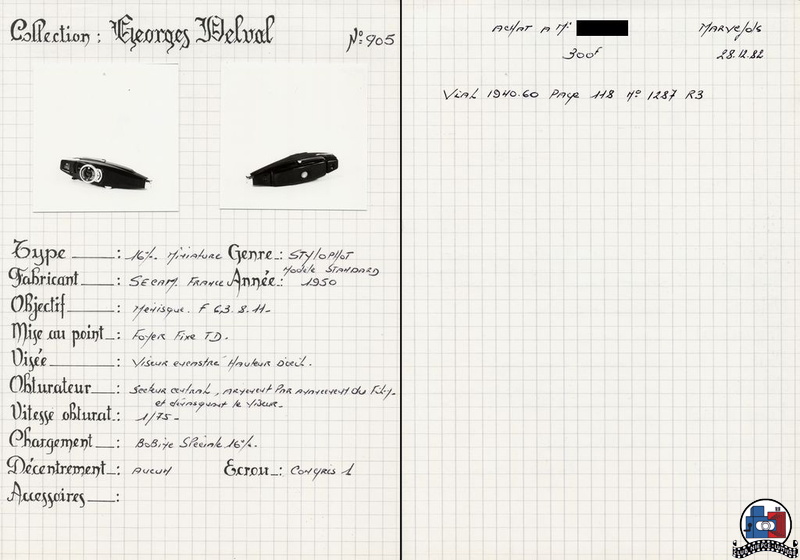 Collection : Georges Delval
Nº 905
Type : 16m/m. Miniature Genre : STYLOPHOT
Modèle STANDARD
Fabricant : SECAM. France Année : 1950
Objectif : Ménisque. F 6,3. 8. 11.
Mise au point : Foyer Fixe TD.
Visée : Viseur encastré Hauteur d'oeil.
Obturateur : Secteur central, armement Par avancement du
et démasquant le viseur.
Vitesse obturat. : 1/75
Chargement : Bobine Spéciale 16m/m.
Décentrement : Aucun Ecrou : Congrès 1
Accessoires :
ACHAT A Mr Marvejols
300F 28.12.82
Vial 1940.60 Page 118 Nº 1287 R3